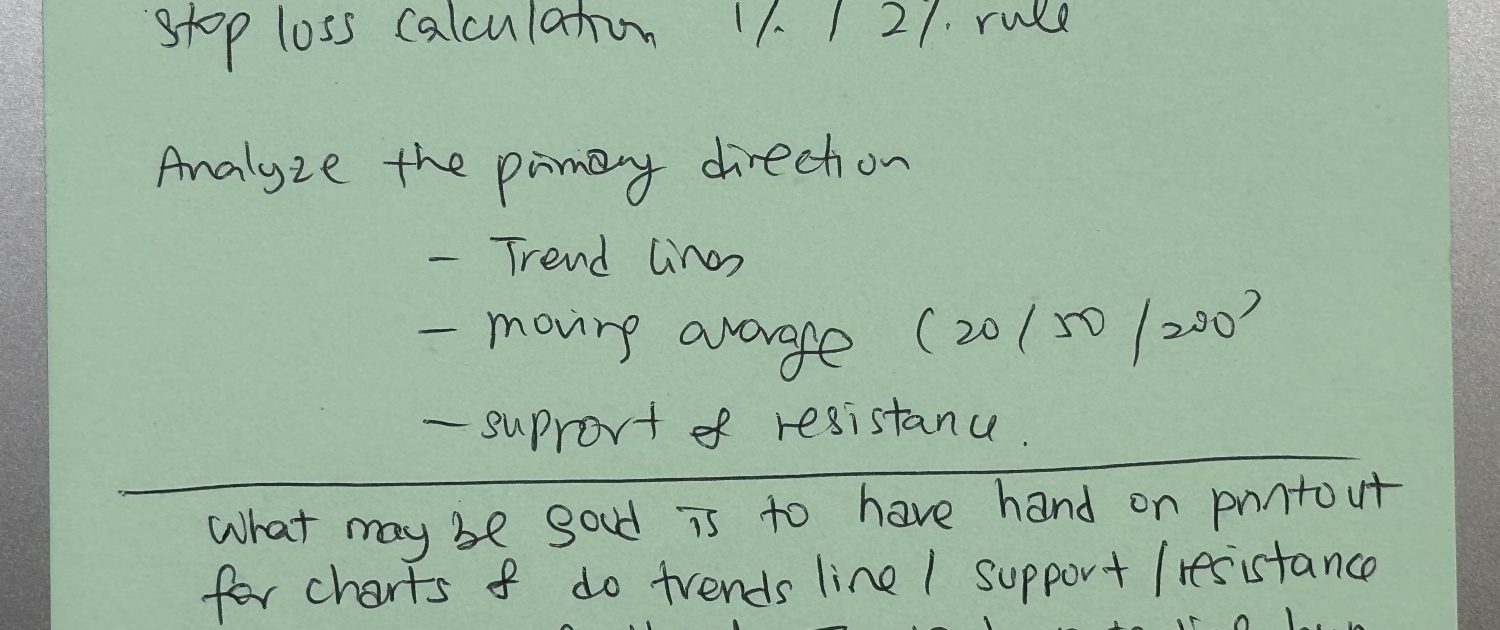 Stop loss calculation 1% / 2% rule
Analyze the primary direction
- Trend lines
- moving average (20/50/200)
- support & resistance.
What may be good is to have hand on printout
for charts & do trends line / support / resistance